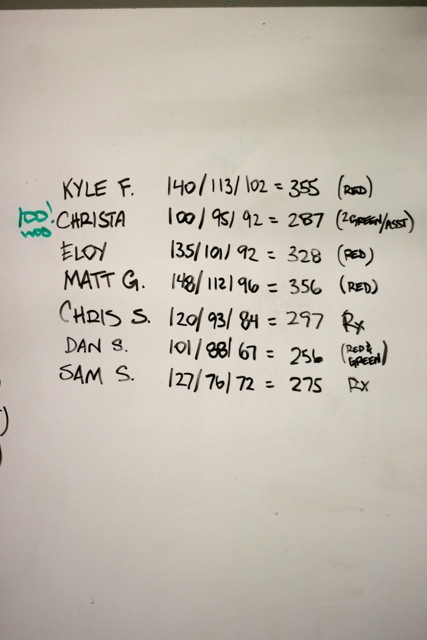 KYLE F. 140/113/102 = 355 (RED)
100! WOD CHRISTA 100/95/92 = 287 (2GREEN/ASST)
ELOY 135/101/92 = 328 (RED)
MATT G. 148/112/96 = 356 (RED)
CHRIS S. 120/93/84 = 297 Rx
DAN S. 101/88/67 = 256 (RED & GREEN)
SAM S. 127/76/72 = 275 Rx